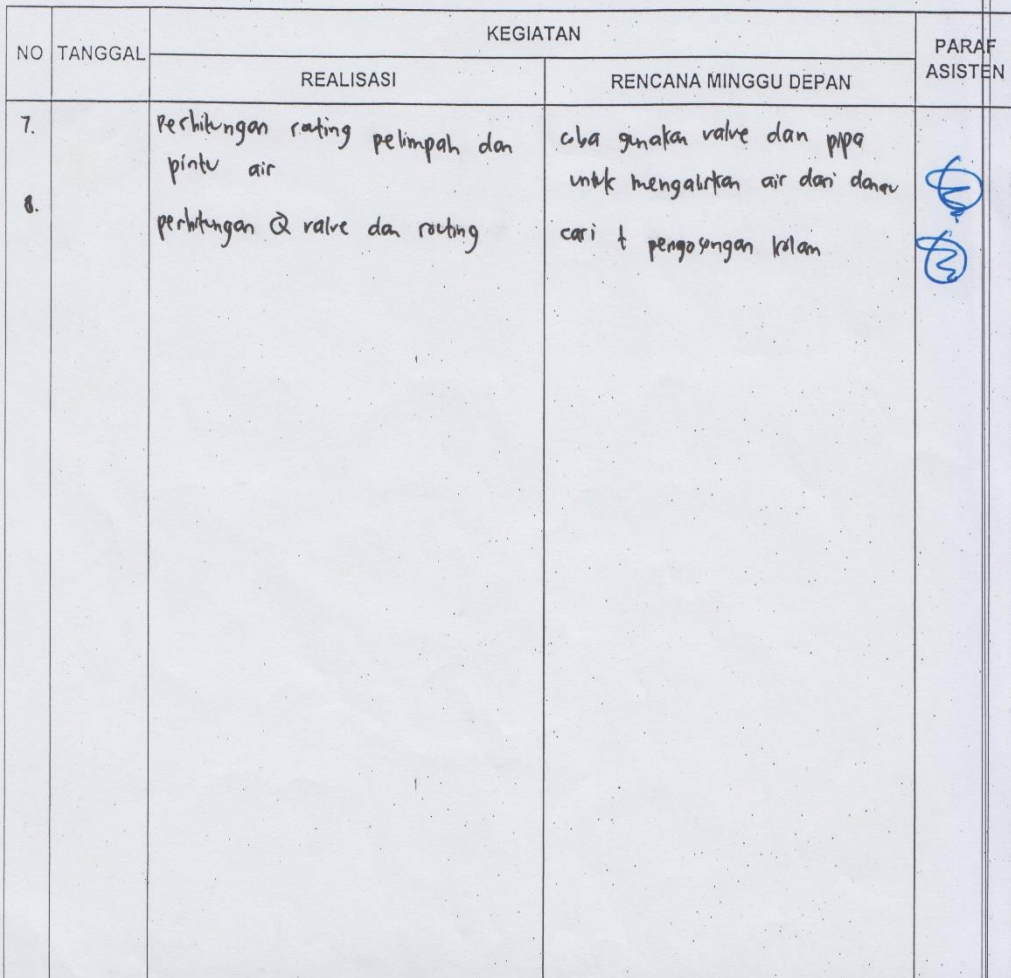 NO TANGGAL KEGIATAN PARAF ASISTEN
REALISASI RENCANA MINGGU DEPAN
7. Perhitungan routing pelimpah dan
pintu air
coba gunakan valve dan pipa
untuk mengalirkan air dari danau
8. perhitungan Q valve dan routing
cari t pengosongan kolam